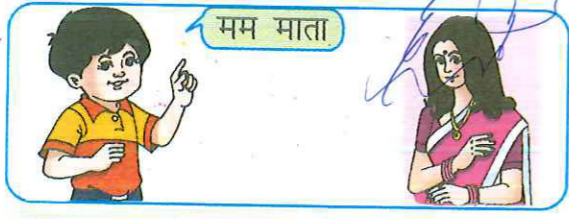 मम माता